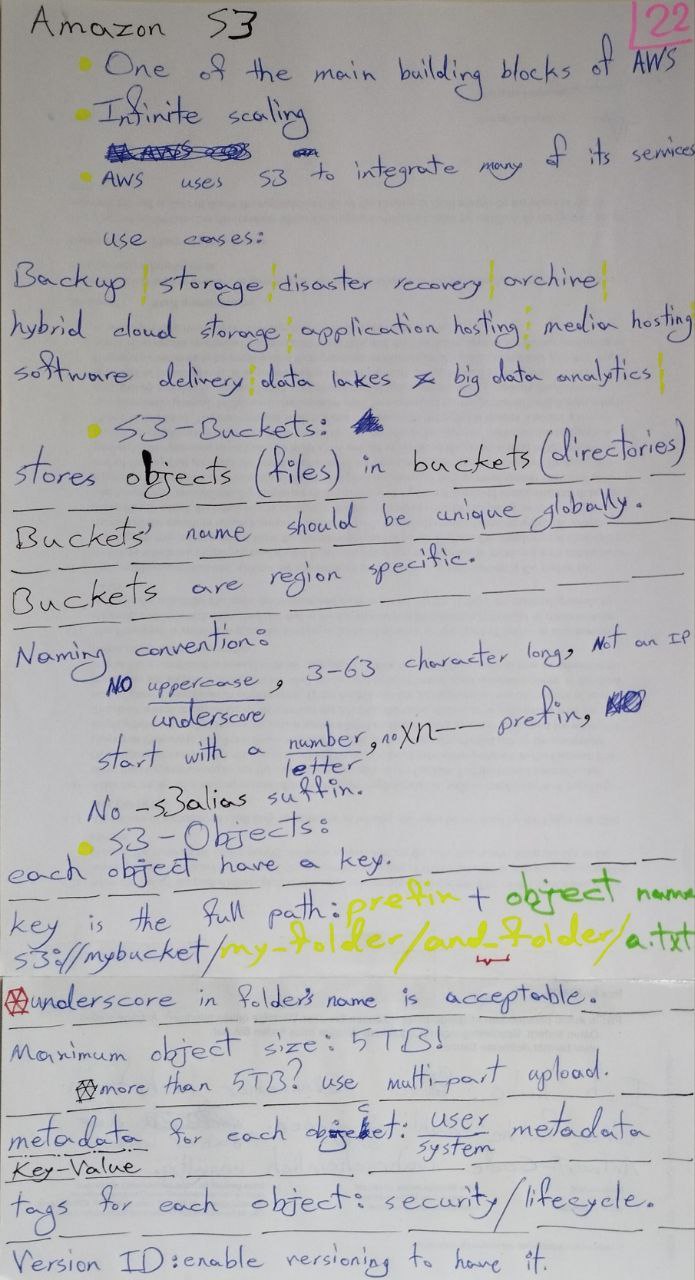 Amazon S3
22
One of the main building blocks of AWS
Infinite scaling
AWS uses S3 to integrate many of its services
use cases:
Backup | storage | disaster recovery | archive |
hybrid cloud storage | application hosting | media hosting
software delivery | data lakes & big data analytics |
S3-Buckets:
stores objects (files) in buckets (directories)
Buckets' name should be unique globally.
Buckets are region specific.
Naming convention:
NO uppercase, 3-63 character long, Not an IP
underscore
start with a number, no xn-- prefix,
letter
No -s3alias suffix.
S3-Objects:
each object have a key.
key is the full path: prefix + object name
s3://mybucket/my_folder/and_folder/a.txt
underscore in folder's name is acceptable.
Maximum object size: 5TB!
more than 5TB? use multi-part upload.
metadata for each object: user metadata
system
Key-Value
tags for each object: security/lifecycle.
Version ID: enable versioning to have it.